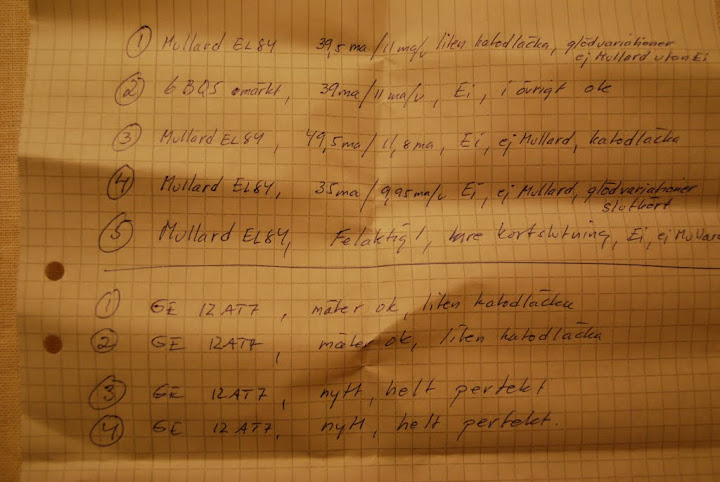 1 Mullard EL84 39,5ma/11ma/v liten katodläcka, glödvariationer
ej Mullard utan Ei
2 6BQ5 omärkt, 39ma/11ma/v, Ei, i övrigt ok
3 Mullard EL84, 49,5ma/11,8ma, Ei, ej Mullard, katodläcka
4 Mullard EL84, 35ma/9,95ma/v Ei, ej Mullard, glödvariationer
slutkört
5 Mullard EL84, Felaktigt, bare kortslutning, Ei, ej Mullard
1 GE 12AT7, mäter ok, liten katodläcka
2 GE 12AT7, mäter ok, liten katodläcka
3 GE 12AT7, nytt, helt perfekt
4 GE 12AT7, nytt, helt perfekt.